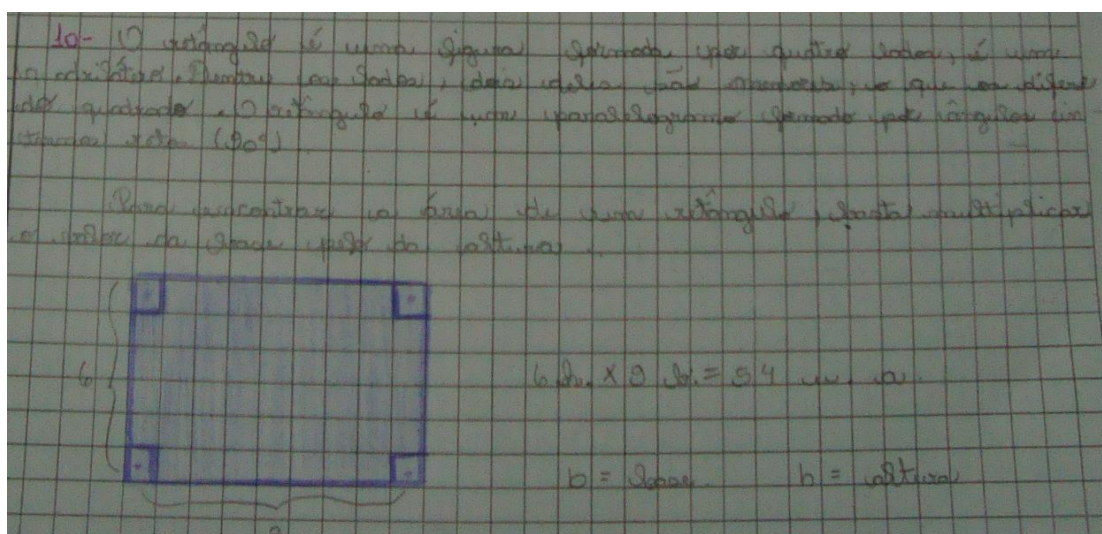 10- O retângulo é uma figura formada por quatro lados, é um
quadrilátero. Dentre os lados, dois deles são menores, o que os difere
do quadrado. O retângulo é um paralelogramo formado por ângulos in
ternos retos (90º)
Para encontrar a área de um retângulo, basta multiplicar
o valor da base pelo da altura.
6
6 h. x 9 b. = 54 u. a.
b = base h = altura